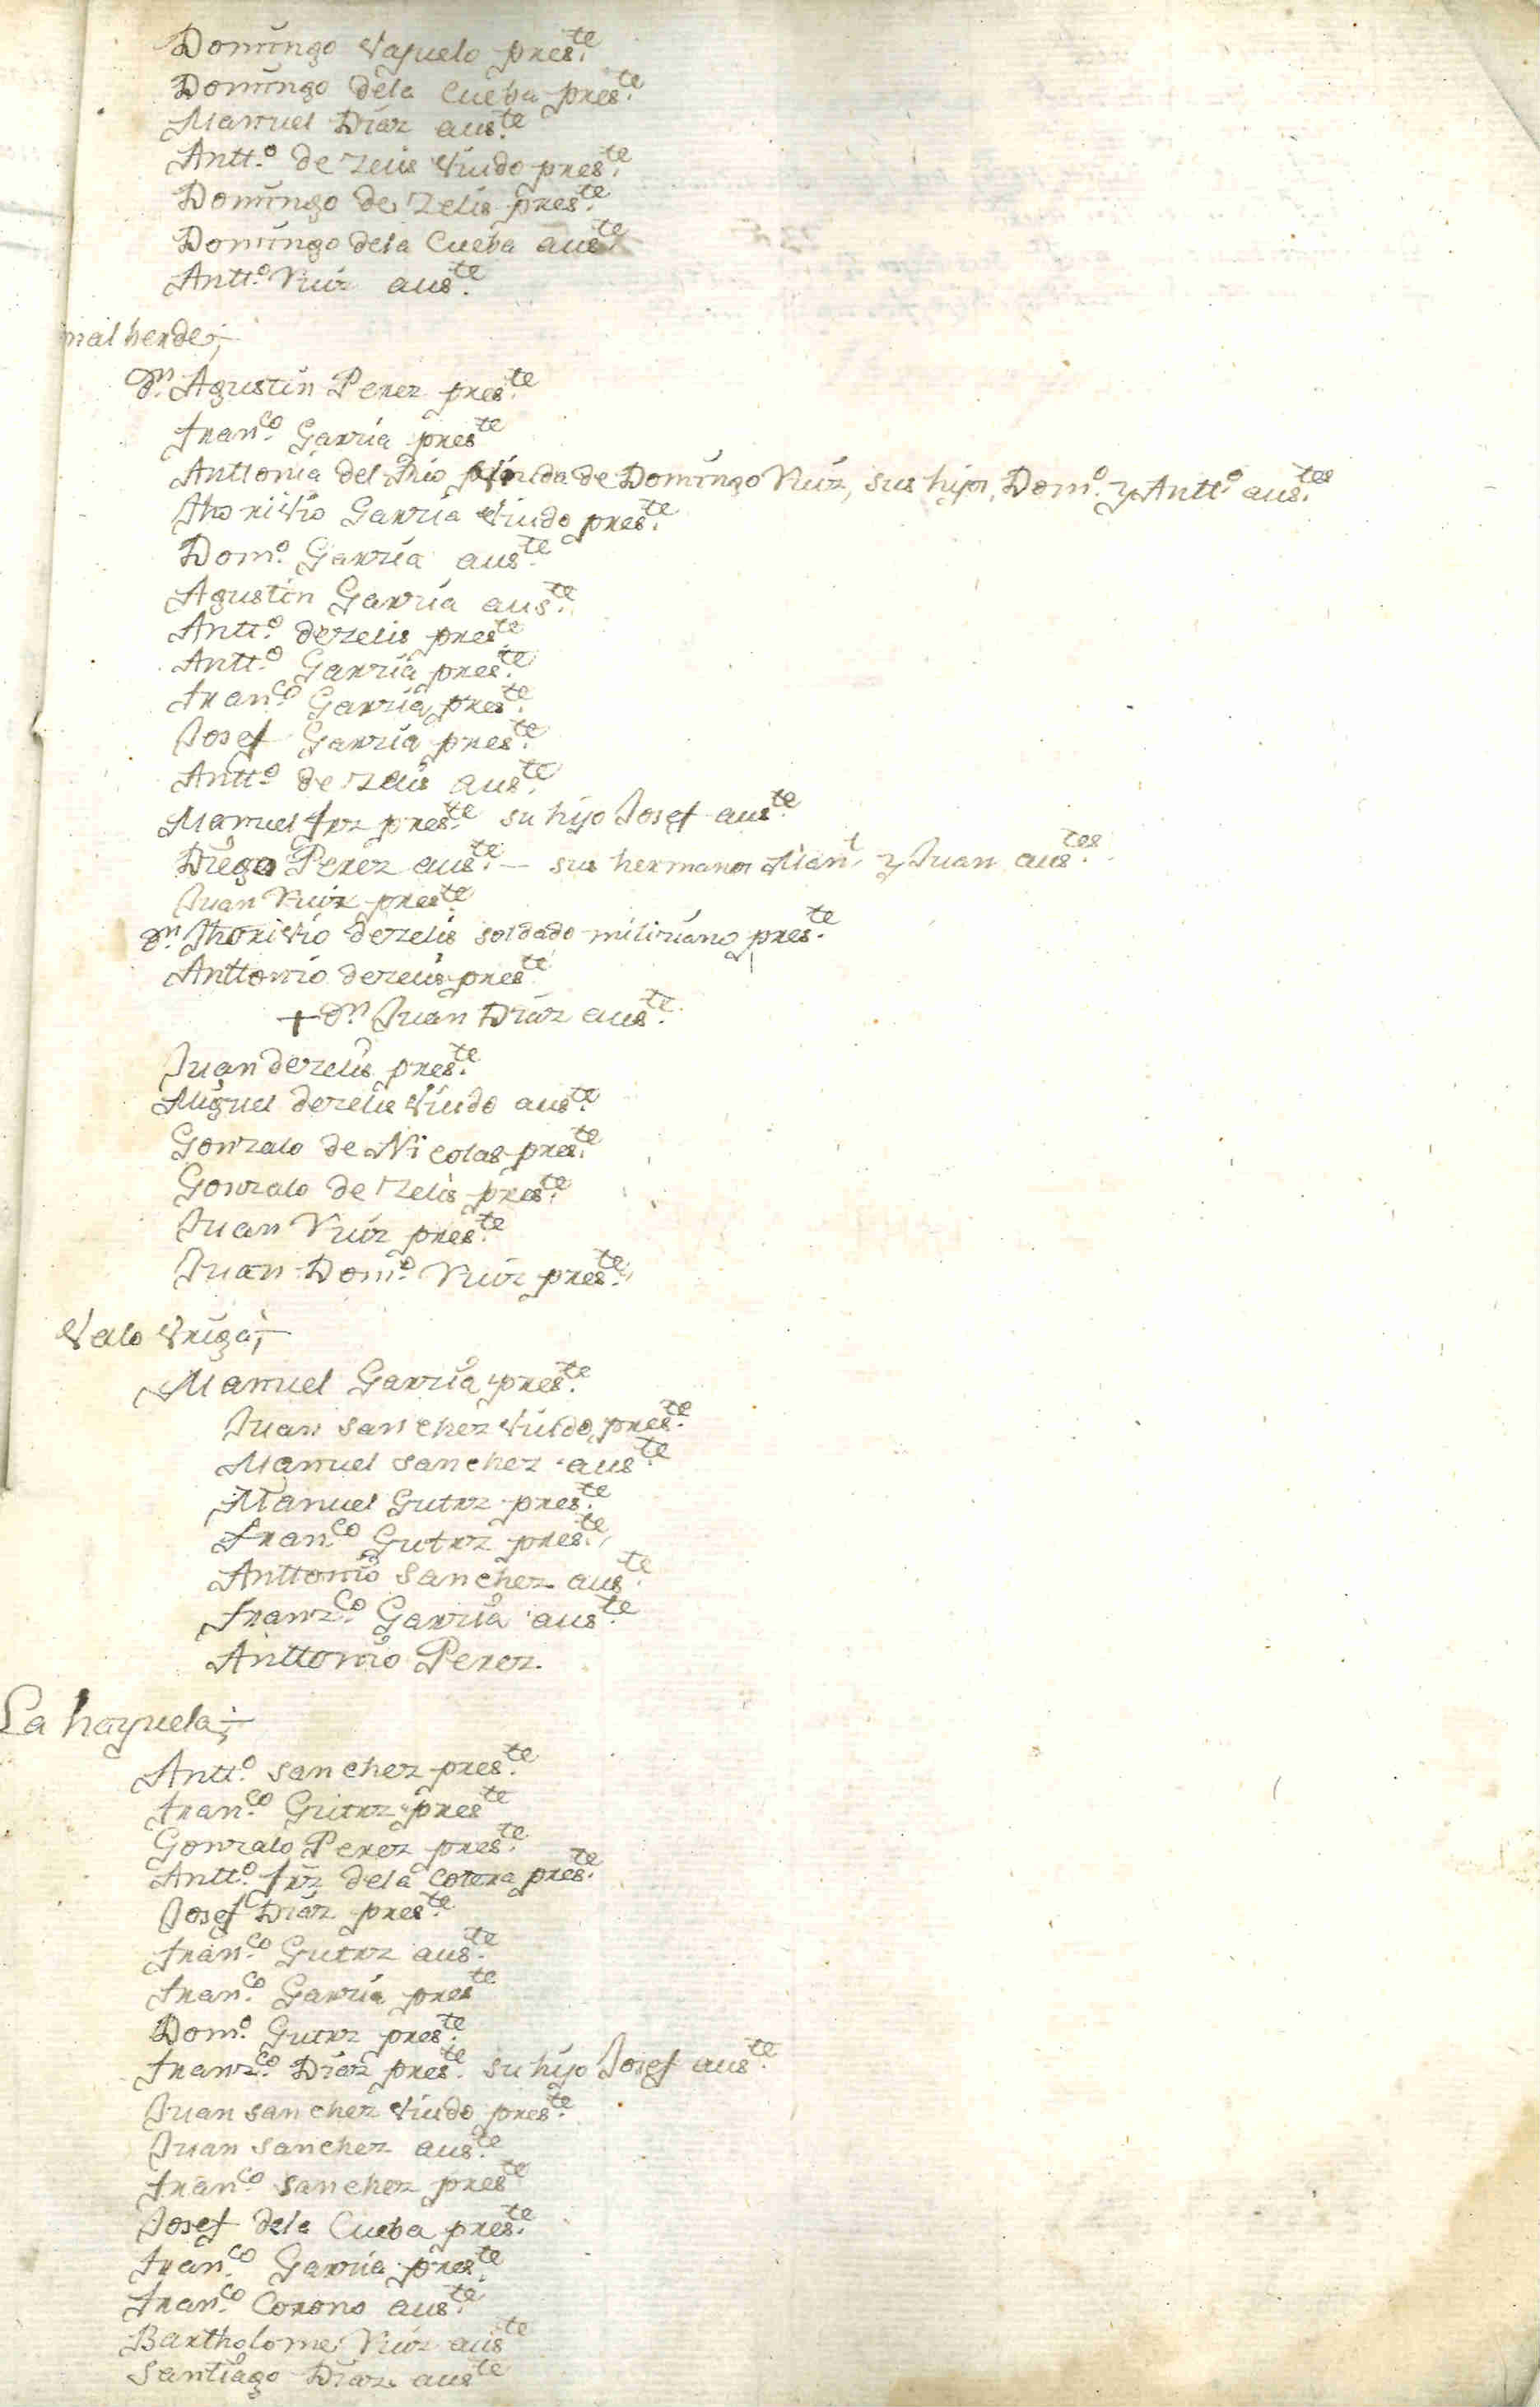 Domingo Vajuelo pres.te
Domingo dela Cueba pres.te
Manuel Diaz aus.te
Antt.o de Zelis Viudo pres.te
Domingo de Zelis pres.te
Domingo dela Cueba aus.te
Antt.o Ruiz aus.te
nal berde;
Dn. Agustin Perez pres.te
Fran.co Garzia pres.te
Anttonia del Rio Viuda de Domingo Ruiz, sus hijos, Dom.o y Antt.o aus.tes
Thorivio Garzia Viudo pres.te
Dom.o Garzia aus.te
Agustin Garzia aus.te
Antt.o dezelis pres.te
Antt.o Garzia pres.te
Fran.co Garzia pres.te
Josef Garzia pres.te
Antt.o de Zelis aus.te
Manuel frz pres.te su hijo Josef aus.te
Diego Perez aus.te – sus hermanos Man.l y Juan aus.tes
Juan Ruiz pres.te
Dn. Thorivio dezelis soldado miliziano pres.te
Anttonio dezelis pres.te
+ Dn. Juan Diaz aus.te
Juan dezelis pres.te
Miguel dezelis Viudo aus.te
Gonzalo de Nicolas pres.te
Gonzalo de Zelis pres.te
Juan Ruiz pres.te
Juan Dom.o Ruiz pres.te
Velo Vriga;
Manuel Garzia pres.te
Juan sanchez Viudo, pres.te
Manuel sanchez aus.te
Manuel Gutrz pres.te
Fran.co Gutrz pres.te
Anttonio Sanchez aus.te
Franz.co Garzia aus.te
Anttonio Perez.
La hayuela;
Antt.o sanchez pres.te
Fran.co Gutrz pres.te
Gonzalo Perez pres.te
Antt.o frz dela Cotera pres.te
Josef Diaz pres.te
Fran.co Gutrz aus.te
Fran.co Garzia pres.te
Dom.o Gutrz pres.te
Franz.co Diaz pres.te su hijo Josef aus.te
Juan sanchez Viudo pres.te
Juan sanchez aus.te
Fran.co sanchez pres.te
Josef dela Cueba pres.te
Fran.co Garzia pres.te
Fran.co Corono aus.te
Bartholome Ruiz aus.te
Santiago Diaz aus.te